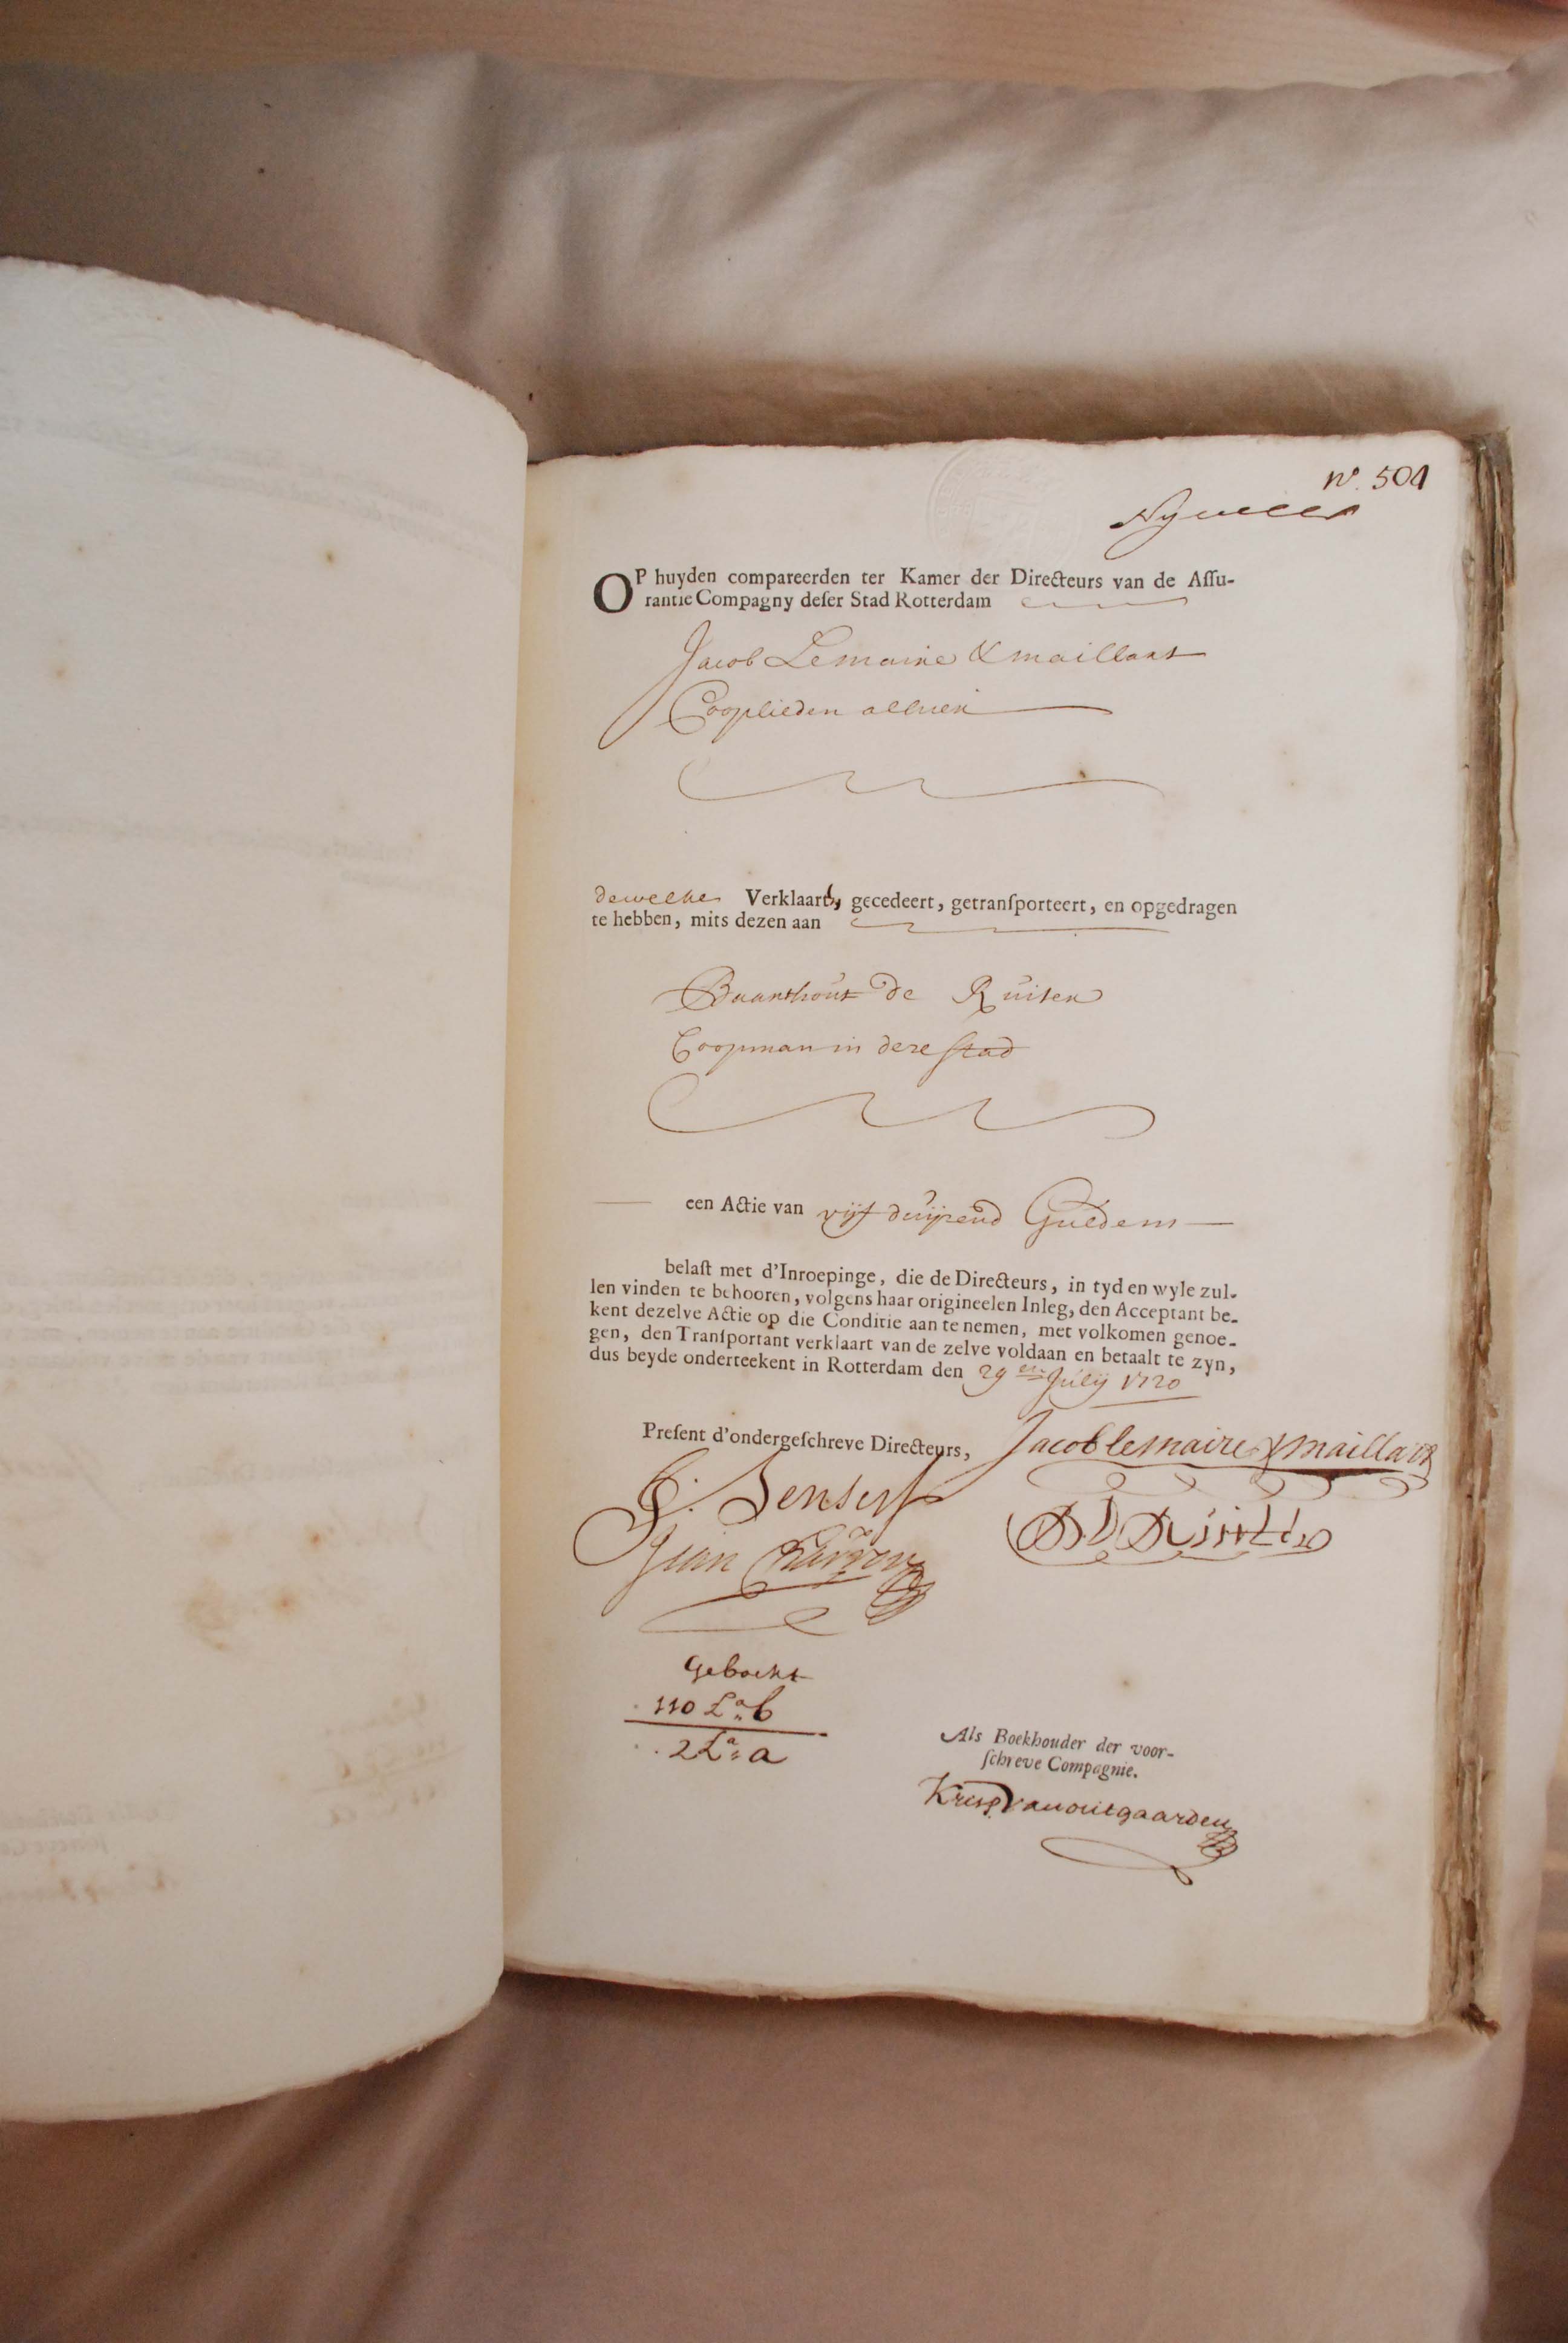 nº. 501
OP huyden compareerden ter Kamer der Directeurs van de Aſſu-
rantie Compagny deſer Stad Rotterdam
Jacob Lemaire & maillart
Cooplieden alhier
dewelke Verklaard, gecedeert, getranſporteert, en opgedragen
te hebben, mits dezen aan
Baarthout de Ruiter
Coopman in deze stad
een Actie van vijf duijzend Guldens
belaſt met d'Inroepinge, die de Directeurs, in tyd en wyle zul-
len vinden te behooren, volgens haar origineelen Inleg, den Acceptant be-
kent dezelve Actie op die Conditie aan te nemen, met volkomen genoe-
gen, den Tranſportant verklaart van de zelve voldaan en betaalt te zyn,
dus beyde onderteekent in Rotterdam den 29 en July 1720
Preſent d'ondergeſchreve Directeurs, Jacob lemaire & maillart
Jean
Geboekt
110 Lª b
2 Lª a
Als Boekhouder der voor-
ſchreve Compagnie.
Krisp Van outgaarden